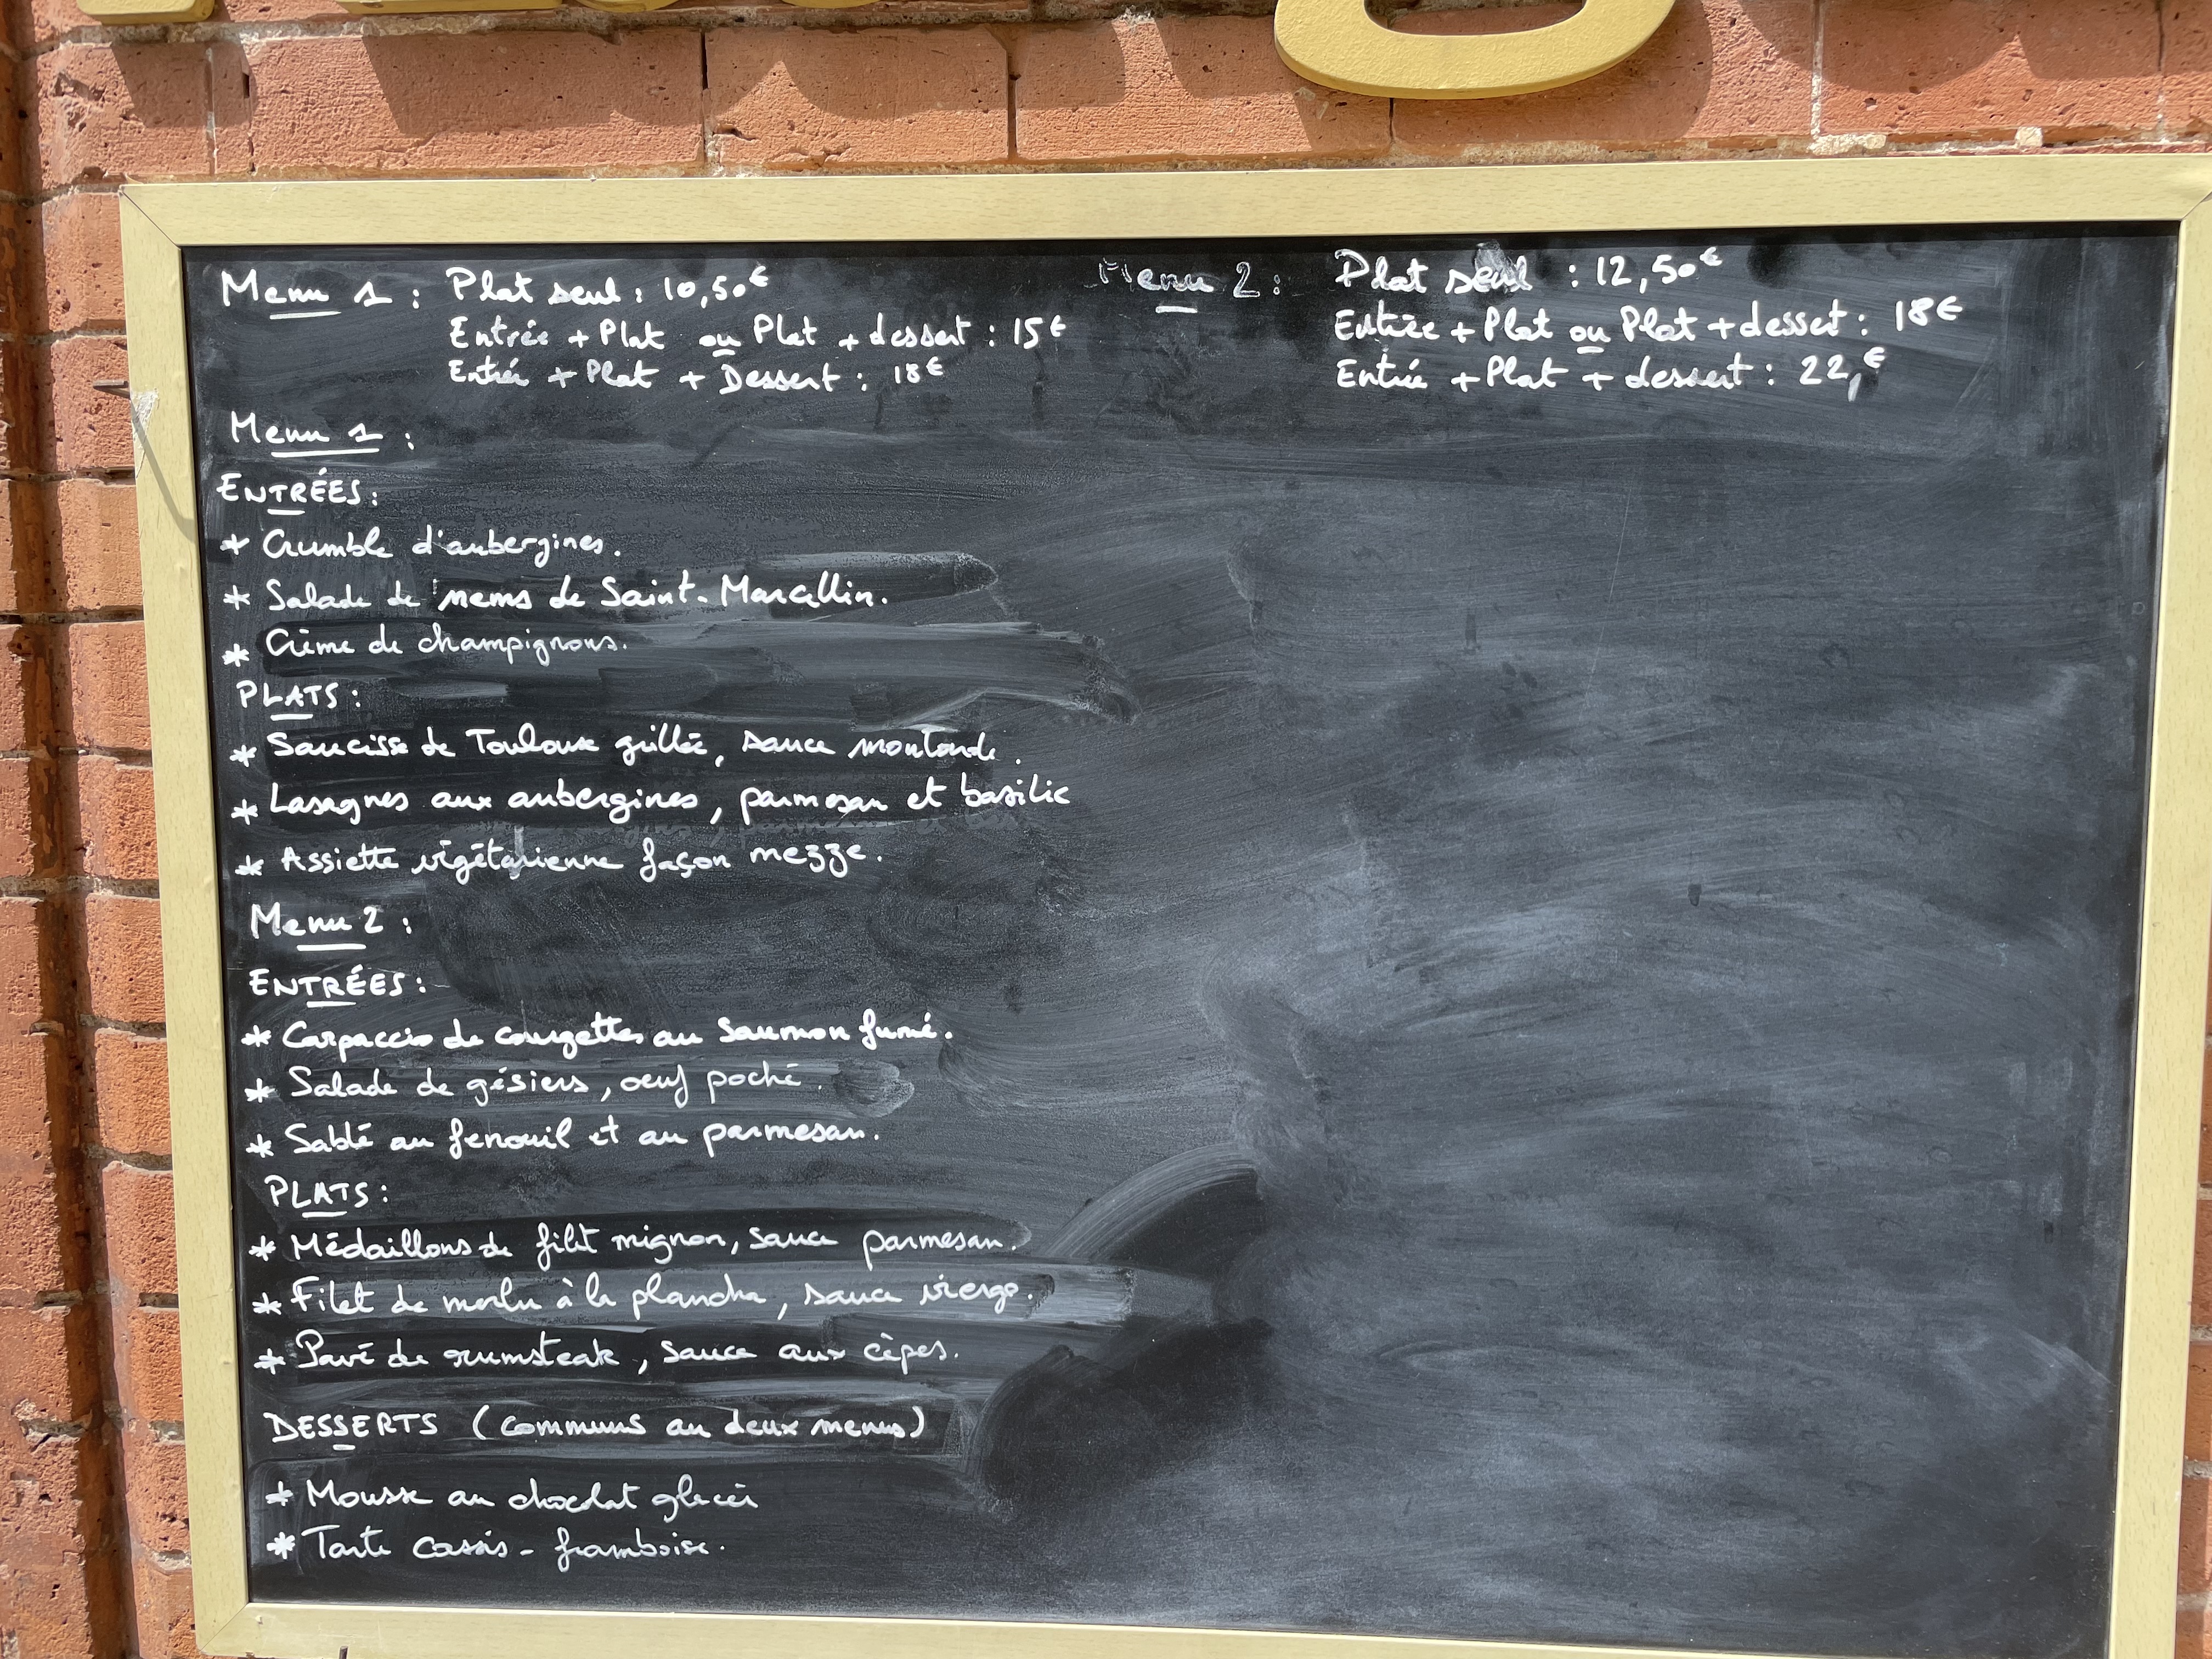 Menu 1 : Plat seul : 10,50€
Entrée + Plat ou Plat + dessert : 15€
Entrée + Plat + Dessert : 18€
Menu 2 : Plat seul : 12,50€
Entrée + Plat ou Plat + dessert : 18€
Entrée + Plat + dessert : 22,€
Menu 1 :
ENTRÉES :
* Crumble d'aubergines.
* Salade de nems de Saint-Marcellin.
* Crème de champignons.
PLATS :
* Saucisse de Toulouse grillée, sauce moutarde.
* Lasagnes aux aubergines, parmesan et basilic
* Assiette végétarienne façon mezze.
Menu 2 :
ENTRÉES :
* Carpaccio de courgettes au saumon fumé.
* Salade de gésiers, oeuf poché.
* Sablé au fenouil et au parmesan.
PLATS :
* Médaillons de filet mignon, sauce parmesan.
* Filet de merlu à la plancha, sauce vierge.
* Pavé de rumsteak, sauce aux cèpes.
DESSERTS (communs au deux menus)
* Mousse au chocolat glacée
* Tarte cassis - framboise.